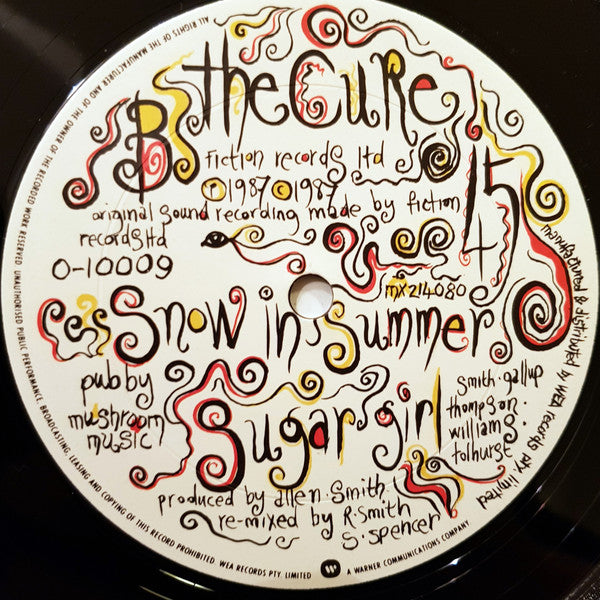 the Cure
B
fiction records ltd
℗1987 ©1987
original sound recording made by fiction
records ltd
45
0-10009
mx214080
Snow in Summer
Sugar girl
pub by
mushroom
music
smith·gallup
thompson·
williams·
tolhurst
produced by allen·smith
re-mixed by R·Smith
S·spencer
manufactured & distributed by WEA records pty. limited
ALL RIGHTS OF THE MANUFACTURER AND OF THE OWNER OF THE RECORDED WORK RESERVED UNAUTHORISED PUBLIC PERFORMANCE, BROADCASTING, LEASING AND COPYING OF THIS RECORD PROHIBITED. WEA RECORDS PTY. LIMITED A WARNER COMMUNICATIONS COMPANY